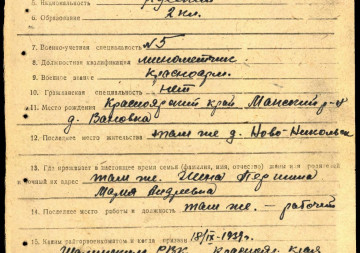 5. Национальность русский
6. Образование 2 кл.
7. Военно-учетная специальность №5
8. Должностная квалификация минометчик
9. Военное звание красноарм.
10. Гражданская специальность нет
11. Место рождения Красноярский край Манский р-н
д.
12. Последнее место жительства там же д. Ново-Никольск
13. Где проживает в настоящее время семья (фамилия, имя, отчество) жены или родителей
точный их адрес там же. Жена
Мария
14. Последнее место работы и должность там же. — рабочий
15. Каким райгорвоенкоматом и когда призван 18/IX-1939г.
РВК Краснояр. края